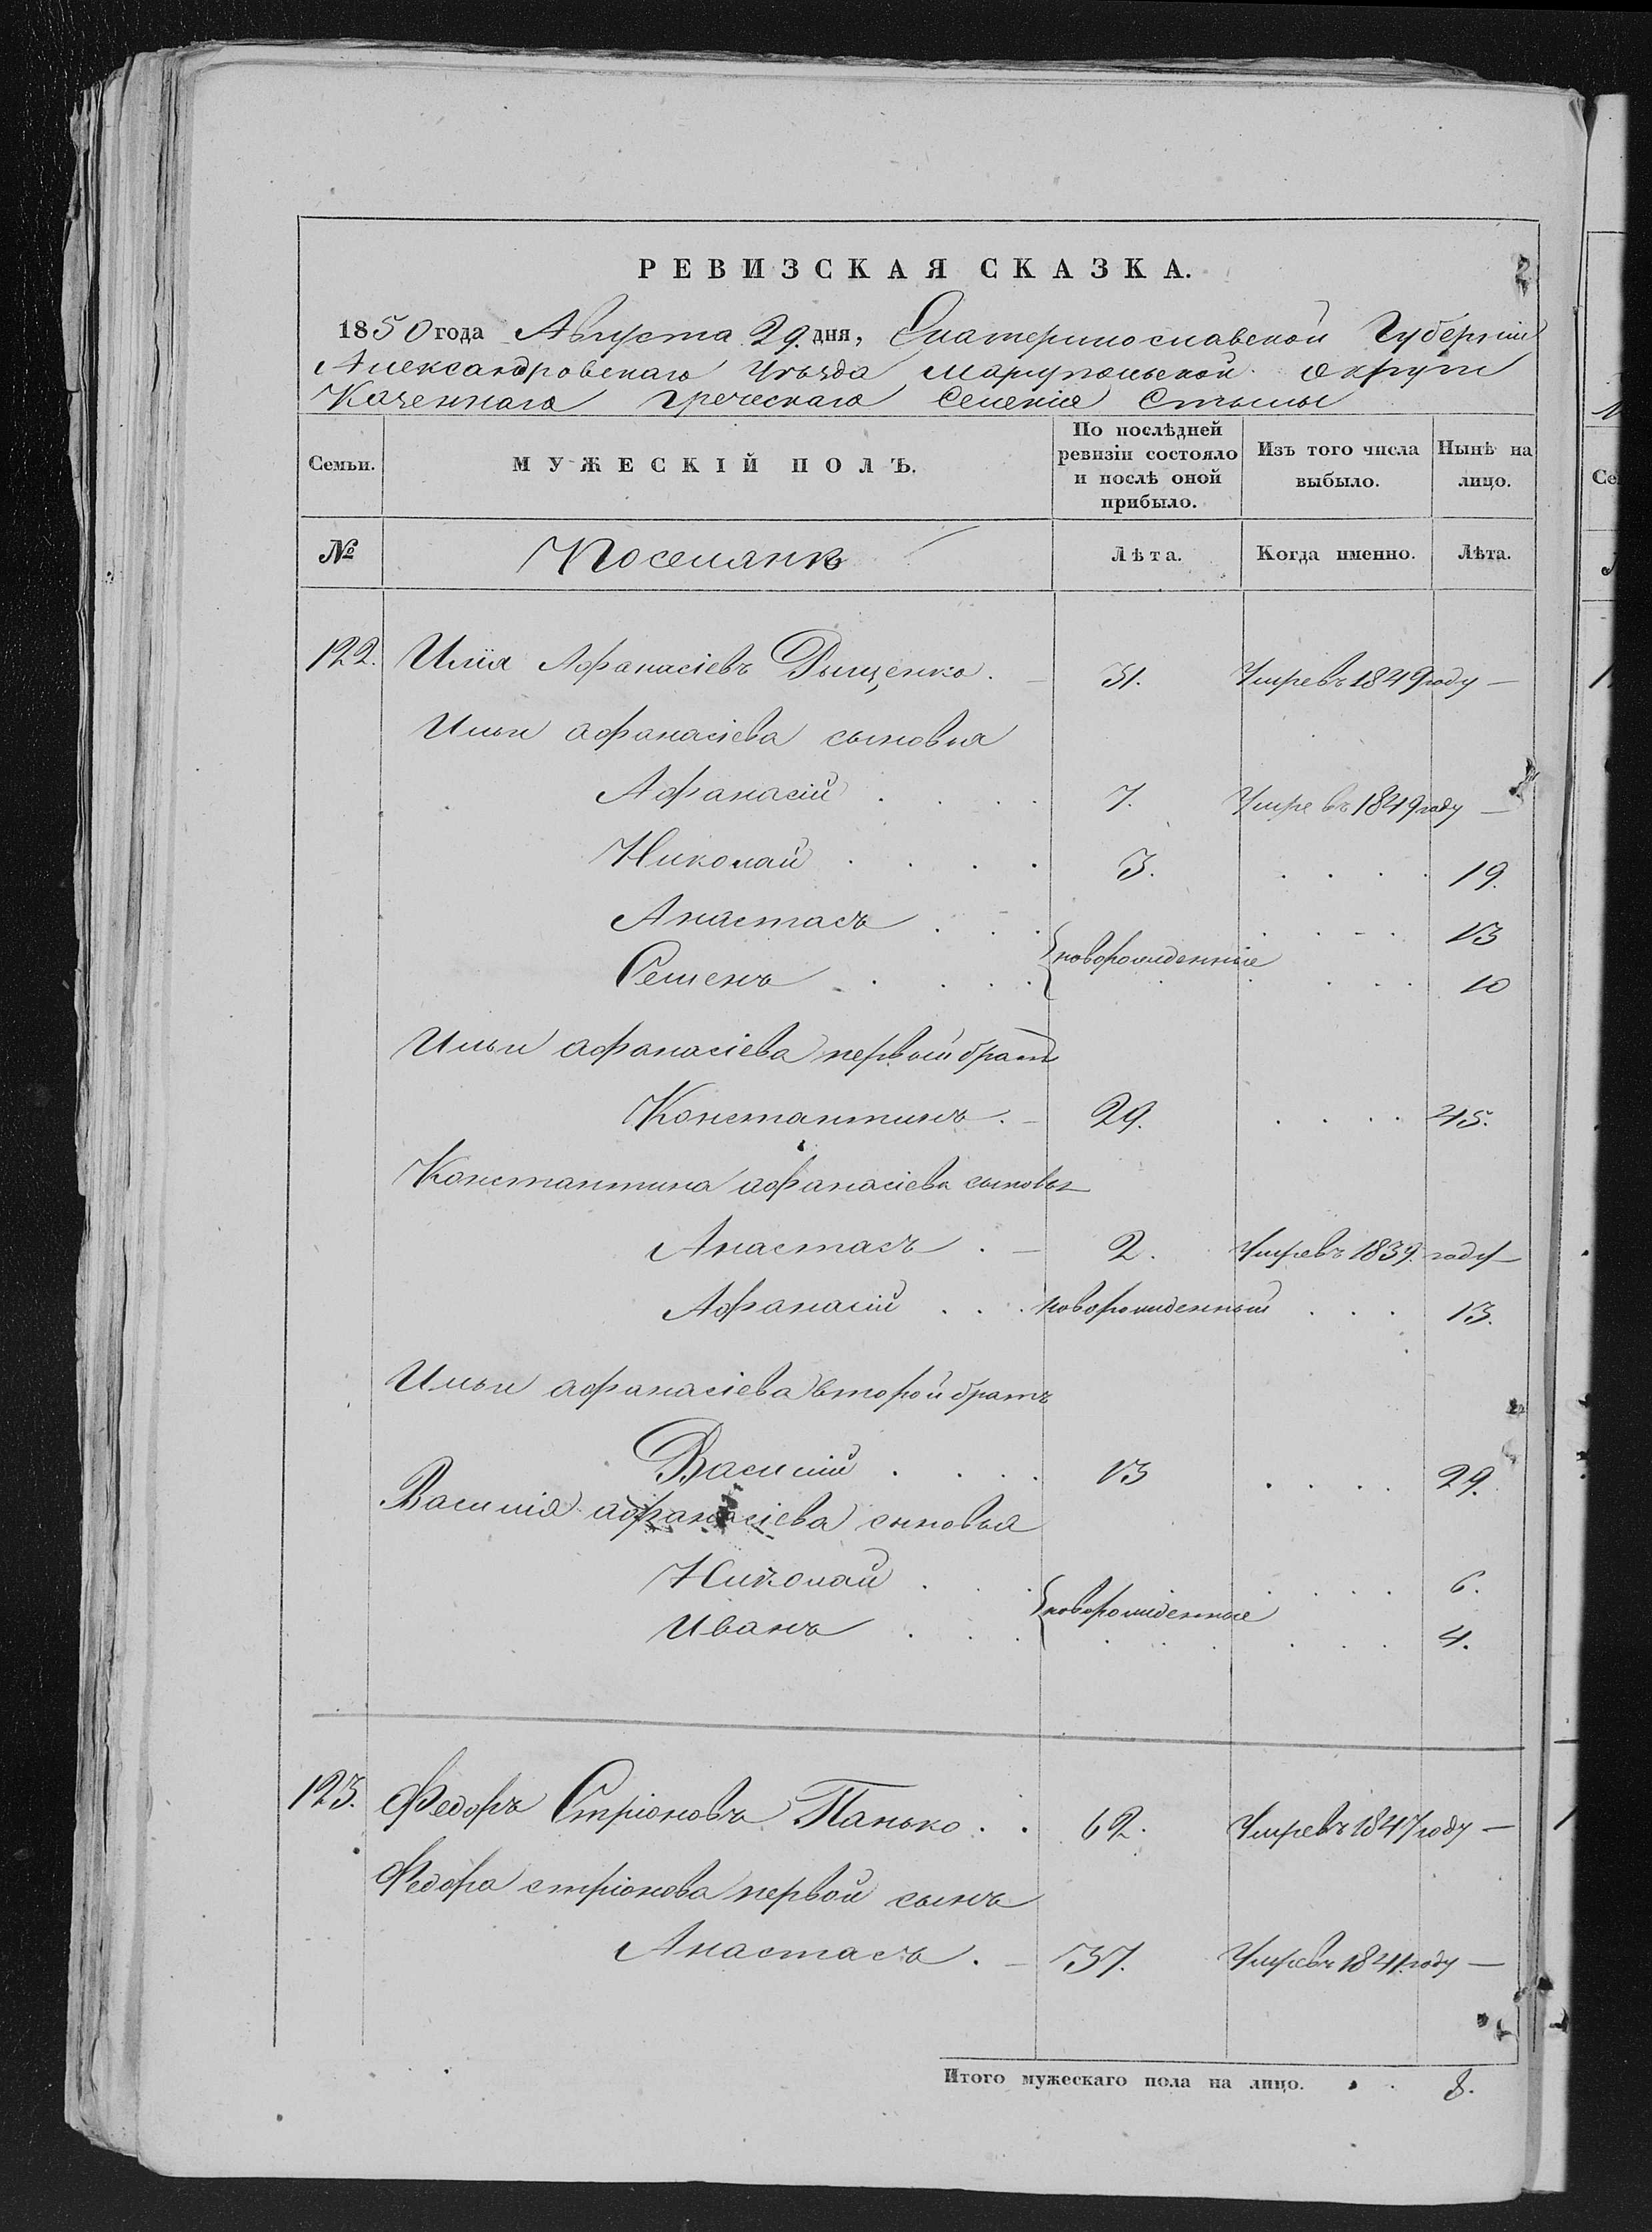 РЕВИЗСКАЯ СКАЗКА.
1850 года Августа 29. дня, Екатеринославской Губерніи
Александровскаго Уѣзда Маріупольской округи
Казеннаго греческаго Селенія Стылы
Семьи. МУЖЕСКІЙ ПОЛЪ. По послѣдней ревизіи состояло и послѣ оной прибыло. Изъ того числа выбыло. Нынѣ на лицо.
№ Поселянъ Лѣта. Когда именно. Лѣта.
122. Илія Афанасіевъ . 31. Умре въ 1849 году —
Ильи афанасіева сыновья
Афанасій . . . . 7. Умре въ 1849 году —
Николай . . . . 3. . . . . 19.
Анастасъ . . . . . . . 13
новорожденные
Семенъ . . . . . . . . 10
Ильи афанасіева первый братъ
Константинъ. — 29. . . . . 45.
Константина афанасіева сыновья
Анастасъ . — 2. Умре въ 1839. году —
Афанасій . . . новорожденный . . . 13.
Ильи афанасіева второй братъ
Василій . . . . 13 . . . . 29.
Василія афанасіева сыновья
Николай . . . . . . . 6.
новорожденные
Иванъ . . . . . . . . 4.
123. Федоръ Стріоновъ Панько . . 62. Умре въ 1847 году —
Федора стріонова первой сынъ
Анастасъ . — 37. Умре въ 1841. году —
Итого мужескаго пола на лицо. . . 8.